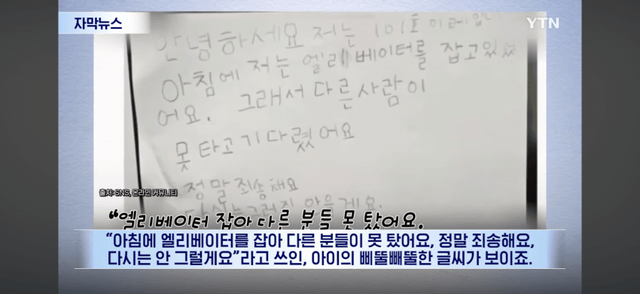 자막뉴스
YTN
안녕하세요 저는 101호
아침에 저는 엘리베이터를 잡고있었
어요. 그래서 다른사람이
못타고 기다렸어요
정말죄송해요
출처: SNS, 온라인 커뮤니티
"엘리베이터 잡아 다른 분들 못 탔어요.
"아침에 엘리베이터를 잡아 다른 분들이 못 탔어요, 정말 죄송해요,
다시는 안 그럴게요"라고 쓰인, 아이의 삐뚤빼뚤한 글씨가 보이죠.